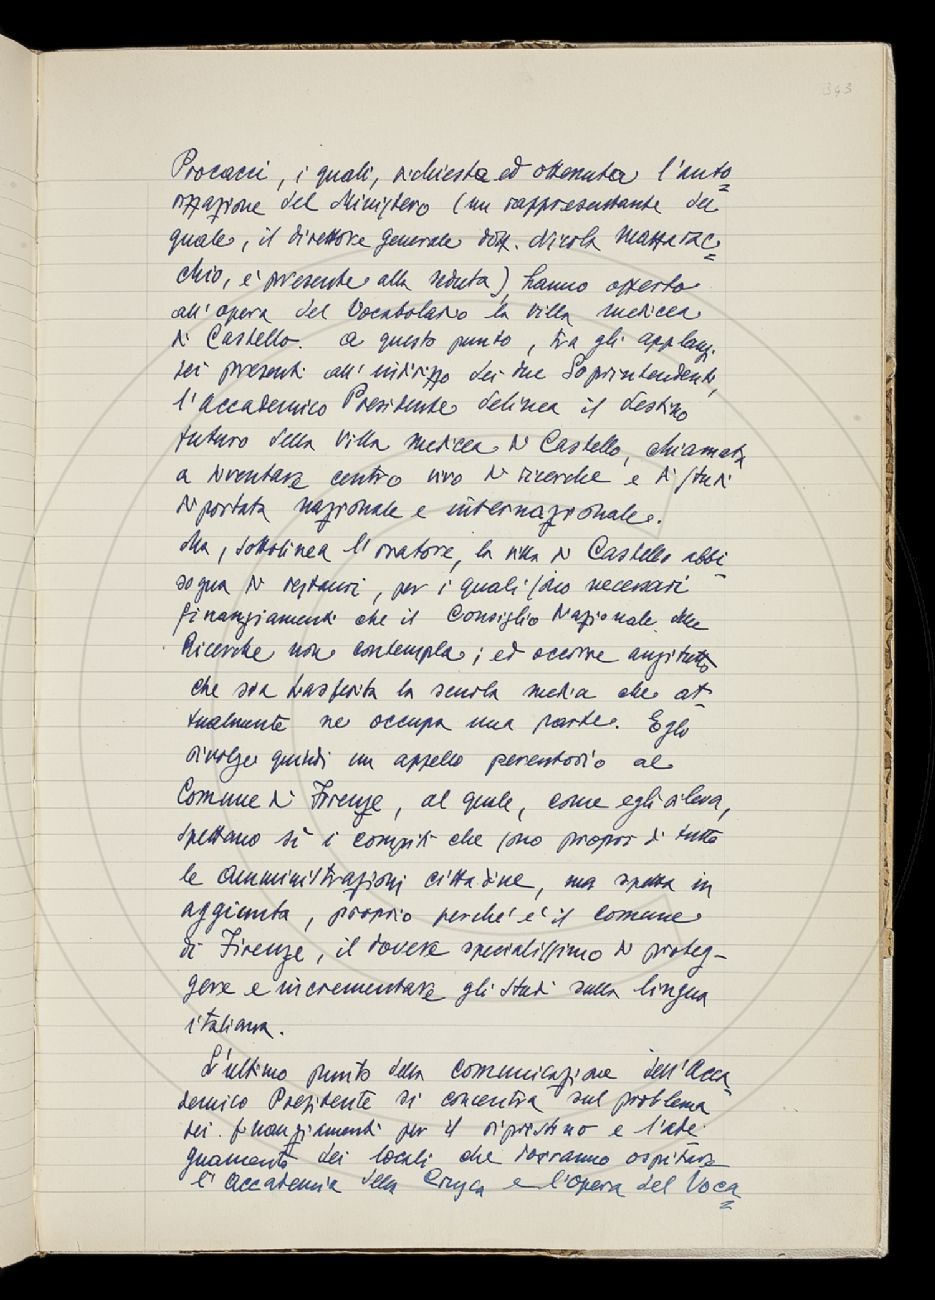 343
Procacci, i quali, richiesta ed ottenuta l'auto=
rizzazione del Ministero (un rappresentante del
quale, il direttore generale dott. Nicola Mattarac=
chio, è presente alla seduta), hanno offerto
all'opera del Vocabolario la villa medicea
di Castello. A questo punto, tra gli applausi
dei presenti all'indirizzo dei due Soprintendenti,
l'Accademico Presidente delinea il destino
futuro della Villa medicea di Castello, chiamata
a diventare centro vivo di ricerche e di studi
di portata nazionale e internazionale.
Ma, sottolinea l'oratore, la villa di Castello abbi-
sogna di restauri, per i quali sono necessari
finanziamenti che il Consiglio Nazionale delle
Ricerche non contempla; ed occorre anzitutto
che sia trasferita la scuola media che at-
tualmente ne occupa una parte. Egli
rivolge quindi un appello perentorio al
Comune di Firenze, al quale, come egli rileva,
spettano sì i compiti che sono propri di tutte
le Amministrazioni cittadine, ma spetta in
aggiunta, proprio perché è il comune
di Firenze, il dovere specialissimo di proteg-
gere e incrementare gli studi sulla lingua
italiana.
L'ultimo punto della comunicazione dell'Acca=
demico Presidente si concentra sul problema
dei finanziamenti per il ripristino e l'ade-
guamento dei locali che dovranno ospitare
l'Accademia della Crusca e l'Opera del Voca=